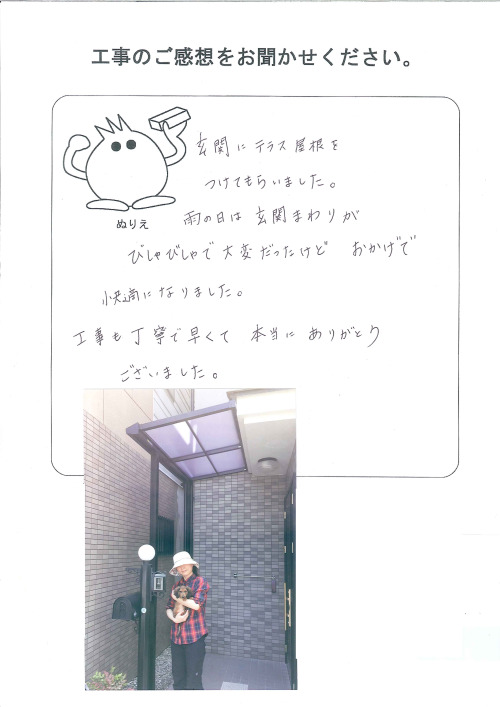 工事のご感想をお聞かせください。
玄関にテラス屋根を
つけてもらいました。
雨の日は玄関まわりが
びしゃびしゃで大変だったけど おかげで
快適になりました。
工事も丁寧で早くて 本当に ありがとう
ございました。
ぬりえ